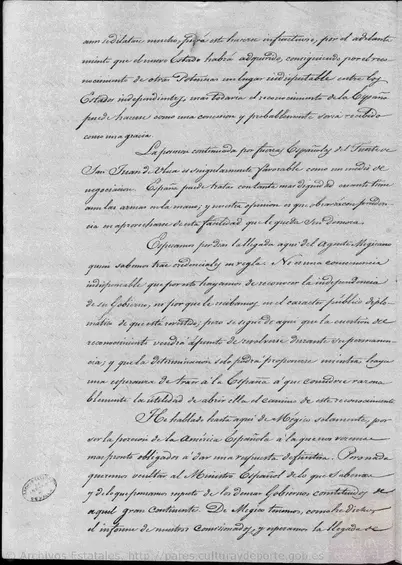 aun se dilatan mucho, podrá esto hacerse infructuoso, por el adelanta-
miento que el nuevo Estado habrá adquirido, consiguiendo por el reco-
nocimiento de otras Potencias un lugar indisputable entre los
Estados independientes, mas todavia el reconocimiento de la España
puede hacerse como una concesion y probablemente seria recibido
como una gracia.
La posesion continuada por fuerzas Españolas del Fuerte de
San Juan de Ulua es singularmente favorable como un medio de
negociacion. España puede tratar con tanta mas dignidad cuanto tiene
aun las armas en la mano; y nuestra opinion es que obraria con pruden-
cia en aprovecharse de esta facilidad que le queda sin demora.
Esperamos podrá la llegada aqui del Agente Megicano
quien sabemos trae credenciales en regla. No es una consecuencia
indispensable que por esto hayamos de reconocer la independencia
de su Gobierno, ni por que le recibamos en el caracter publico diplo-
matico de que está revestido; pero se sigue de aqui que la cuestion del
reconocimiento vendrá á punto de resolverse durante su permanen-
cia; y que la determinacion solo podrá proponerse mientras haya
una esperanza de traer á la España á que considere razona-
blemente la utilidad de abrir ella el camino de este reconocimiento
He hablado hasta aqui de Mégico solamente, por
ser la porcion de la America Española á la que nos vemos
mas pronto obligados á dar una respuesta definitiva. Pero nada
queremos ocultar al Ministro Español de lo que sabemos
y deliquiamos respeto de los demas Gobiernos constituidos de
aquel gran Continente. De Megico tenemos, como he dicho,
el informe de nuestros Comisionados, y esperamos la llegada de
Archivos Estatales, http://pares.culturaydeporte.gob.es